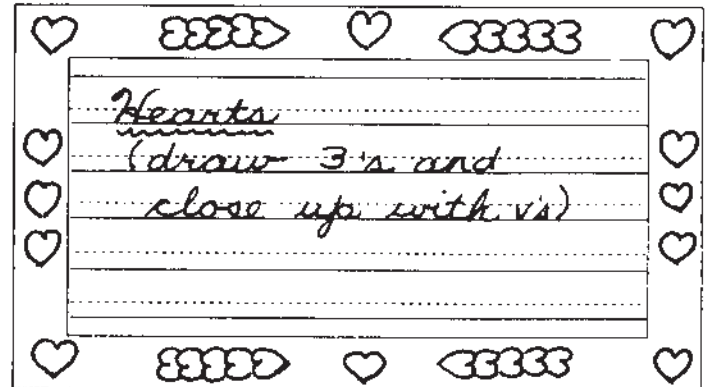 Hearts
(draw 3's and
close up with v's)